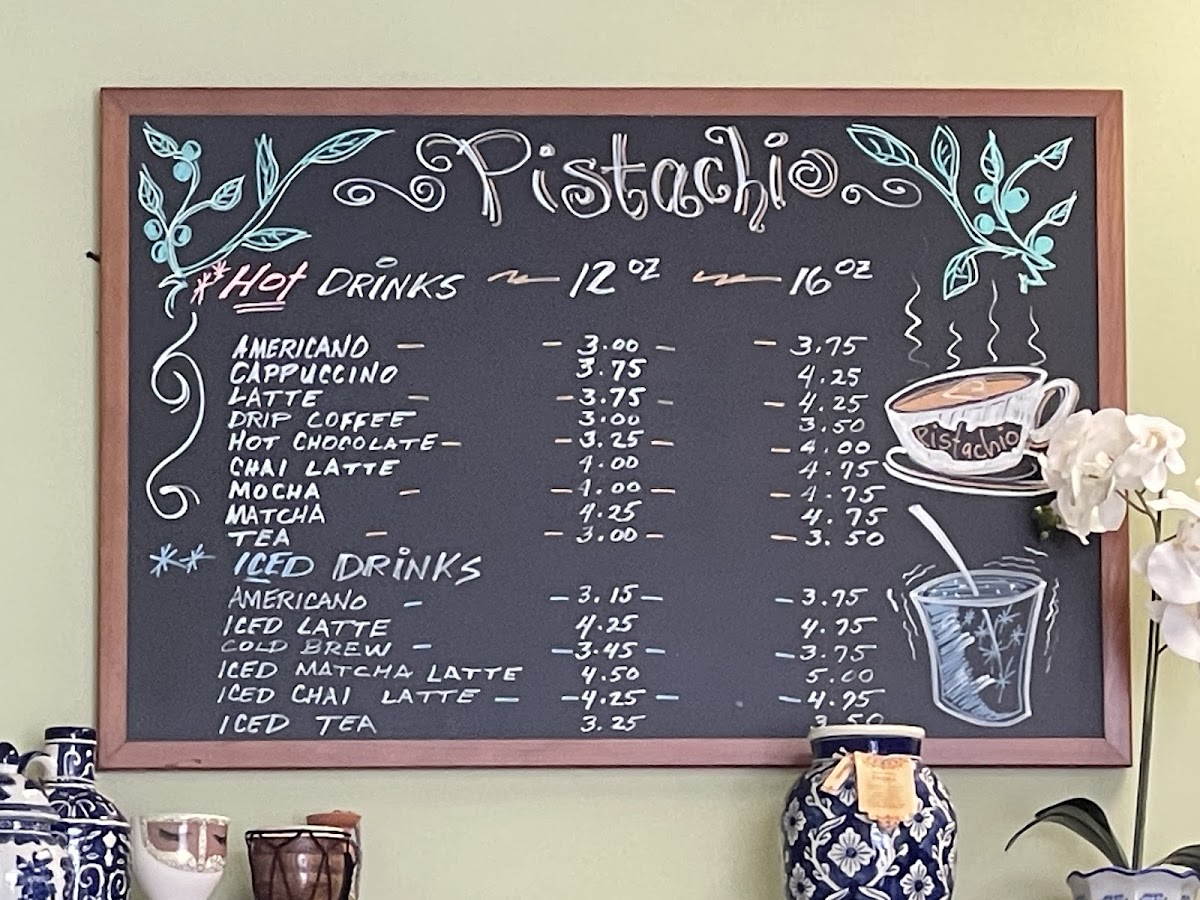 Pistachio
**Hot DRINKS 12 oz 16 oz
AMERICANO - 3.00 - 3.75
CAPPUCCINO 3.75 4.25
LATTE - 3.75 - 4.25
DRIP COFFEE 3.00 3.50
HOT CHOCOLATE - 3.25 - 4.00
CHAI LATTE 4.00 4.75
MOCHA - 4.00 - 4.75
MATCHA 4.25 4.75
TEA - 3.00 - 3.50
Pistachio
** ICED DRINKS
AMERICANO - 3.15 - 3.75
ICED LATTE 4.25 4.75
COLD BREW - 3.45 - 3.75
ICED MATCHA LATTE 4.50 5.00
ICED CHAI LATTE - 4.25 - 4.75
ICED TEA 3.25 3.50